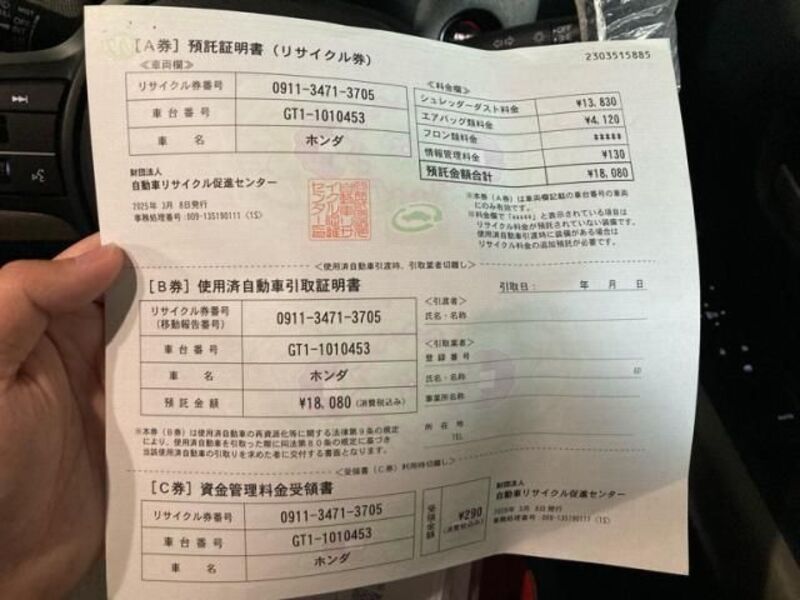 [A券] 預託証明書 (リサイクル券)
2303515885
≪車両欄≫
リサイクル券番号 0911-3471-3705
車台番号 GT1-1010453
車名 ホンダ
≪料金欄≫
シュレッダーダスト料金 ¥13,830
エアバッグ類料金 ¥4,120
フロン類料金 *****
情報管理料金 ¥130
預託金額合計 ¥18,080
財団法人
自動車リサイクル促進センター
2025年 3月 8日発行
事務処理番号:009-135190111 (1S)
※本券(A券)は車両欄記載の車台番号の車両
にのみ有効です。
※料金欄で「*****」と表示されている項目は
リサイクル料金が預託されていない装備です。
使用済自動車引渡時に装備がある場合は
リサイクル料金の追加預託が必要です。
<使用済自動車引渡時、引取業者切離し>
[B券] 使用済自動車引取証明書
引取日: 年 月 日
リサイクル券番号
(移動報告番号) 0911-3471-3705
車台番号 GT1-1010453
車名 ホンダ
預託金額 ¥18,080 (消費税込み)
<引渡者>
氏名・名称
<引取業者>
登録番号
氏名・名称 印
事業所名称
所在地
TEL
※本券(B券)は使用済自動車の再資源化等に関する法律第9条の規定
により、使用済自動車を引取った際に同法第80条の規定に基づき
当該使用済自動車の引取りを求めた者に交付する書面となります。
<受領書(C券)利用時切離し>
[C券] 資金管理料金受領書
リサイクル券番号 0911-3471-3705
車台番号 GT1-1010453
車名 ホンダ
受領金額 ¥290
(消費税込み)
財団法人
自動車リサイクル促進センター
3月 8日発行
事務処理番号:009-135190111 (1S)